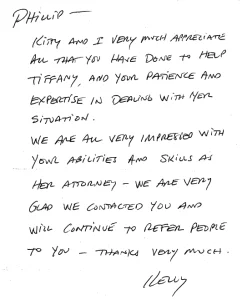 PHILLIP —
KITTY AND I VERY MUCH APPRECIATE
ALL THAT YOU HAVE DONE TO HELP
TIFFANY, AND YOUR PATIENCE AND
EXPERTISE IN DEALING WITH HER
SITUATION.
WE ARE ALL VERY IMPRESSED WITH
YOUR ABILITIES AND SKILLS AS
HER ATTORNEY – WE ARE VERY
GLAD WE CONTACTED YOU AND
WILL CONTINUE TO REFER PEOPLE
TO YOU – THANKS VERY MUCH.
KELLY